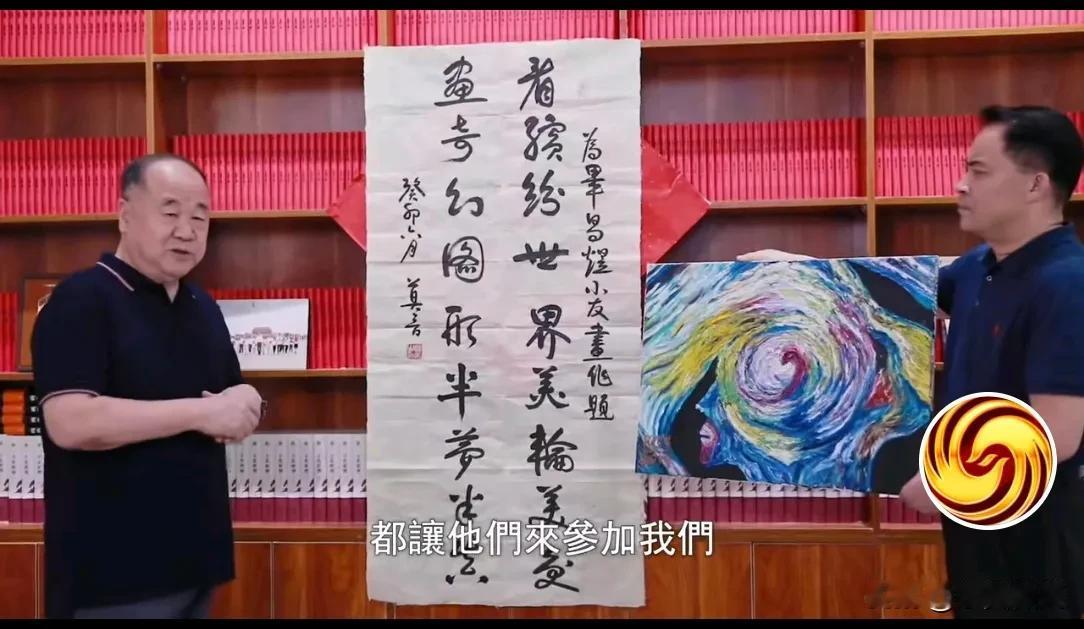 為畢昌煜小友畫作題
看繽紛世界美輪美奐
畫奇幻圖形半夢半真
癸卯六月 莫言
都讓他們來參加我們